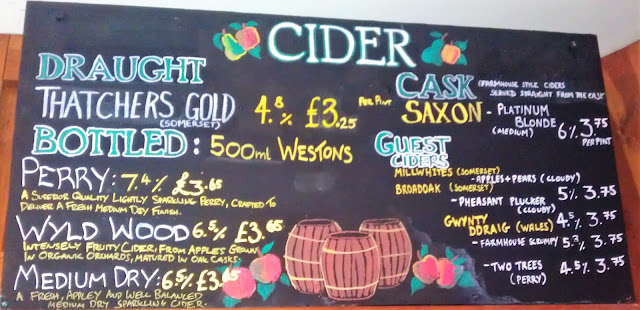 CIDER
DRAUGHT
THATCHERS GOLD 4.8% £3.25 PER PINT
(SOMERSET)
BOTTLED: 500ml WESTONS
PERRY: 7.4% £3.65
A SUPERIOR QUALITY LIGHTLY SPARKLING PERRY, CRAFTED TO
DELIVER A FRESH MEDIUM DRY FINISH.
WYLD WOOD 6.5% £3.65
INTENSELY FRUITY CIDER, FROM APPLES GROWN
IN ORGANIC ORCHARDS, MATURED IN OAK CASKS.
MEDIUM DRY: 6.5% £3.65
A FRESH, APPLEY AND WELL BALANCED
MEDIUM DRY SPARKLING CIDER.
CASK (FARMHOUSE STYLE CIDERS
SERVED STRAIGHT FROM THE CASK
SAXON - PLATINUM
BLONDE
(MEDIUM) 6% 3.75
PER PINT
GUEST
CIDERS
MILLWHITES (SOMERSET)
- APPLES + PEARS (CLOUDY)
BROADOAK (SOMERSET) 5% 3.75
- PHEASANT PLUCKER
(CLOUDY)
GWYNTY 4.5% 3.75
DDRAIG (WALES)
- FARMHOUSE SCRUMPY 5.3% 3.75
- TWO TREES 4.5% 3.75
(PERRY)